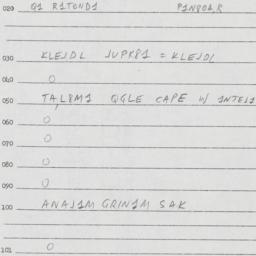 020 Q1 R1TOND1 P1N8O4,8
030 KLEJDL JUPK81 = KLEJDL
040 O
050 TA,L8M1 QGLE CAPE W/ 1NTEJ1
060 O
070 O
080 O
090 O
100 ANAJ1M GRIN1M SAK
101 O